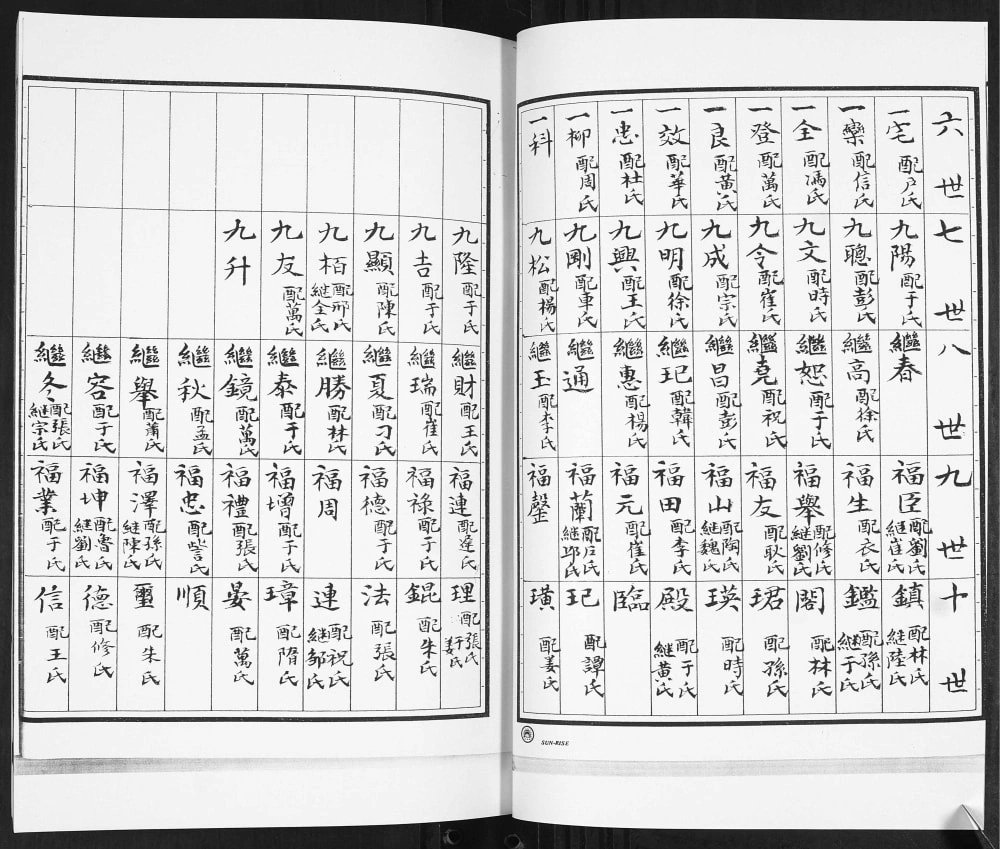 六世 七世 八世 九世 十世
一宅 配戶氏 九陽 配于氏 繼春 福臣 配劉氏 継崔氏 鎮 配林氏 継陸氏
一欒 配信氏 九聰 配彭氏 繼高 配徐氏 福生 配衣氏 鑑 配孫氏 継于氏
一全 配馮氏 九文 配時氏 繼恕 配于氏 福舉 配修氏 継劉氏 閣 配林氏
一登 配萬氏 九令 配崔氏 繼堯 配祝氏 福友 配耿氏 珺 配孫氏
一良 配黃氏 九成 配宗氏 繼昌 配彭氏 福山 配陶氏 継魏氏 瑛 配時氏
一效 配華氏 九明 配徐氏 繼玘 配韓氏 福田 配李氏 殿 配于氏 継黃氏
一忠 配杜氏 九興 配王氏 繼惠 配楊氏 福元 配崔氏 臨
一柳 配周氏 九剛 配車氏 繼通 福蘭 配戶氏 継邱氏 玘 配譚氏
一科 九松 配楊氏 繼玉 配李氏 福 璜 配姜氏
SUN-RISE
九隆 配于氏 繼財 配王氏 福連 配逄氏 理 配張氏 于氏 姜氏
九吉 配于氏 繼瑞 配崔氏 福祿 配于氏 錕 配朱氏
九顯 配陳氏 繼夏 配刁氏 福德 配于氏 法 配張氏
九栢 配邢氏 継仝氏 繼勝 配林氏 福周 連 配祝氏 継鄒氏
九友 配萬氏 繼泰 配于氏 福增 配于氏 璋 配隋氏
九升 繼鏡 配萬氏 福禮 配張氏 晏 配萬氏
繼秋 配孟氏 福忠 配訾氏 順
繼舉 配蕭氏 福澤 配孫氏 継陳氏 璽 配朱氏
繼容 配于氏 福坤 配魯氏 継劉氏 德 配修氏
繼冬 配張氏 継宗氏 福業 配于氏 信 配王氏